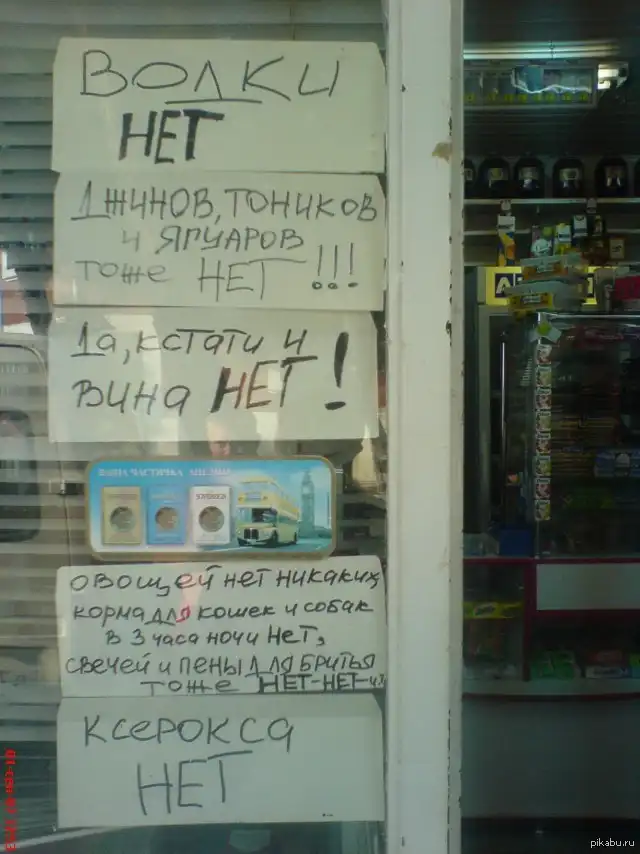 ВОЛКИ
НЕТ
ДЖИНОВ, ТОНИКОВ
И ЯГУАРОВ
тоже НЕТ !!!
Да, кстати и
вина НЕТ!
ВАША ЧАСТИЧКА АНГЛИИ
ОВОЩЕЙ НЕТ НИКАКИХ,
корма для кошек и собак
в 3 часа ночи НЕТ,
СВЕЧЕЙ И ПЕНЫ ДЛЯ БРИТЬЯ
ТОЖЕ НЕТ-НЕТ-и
КСЕРОКСА
НЕТ
pikabu.ru